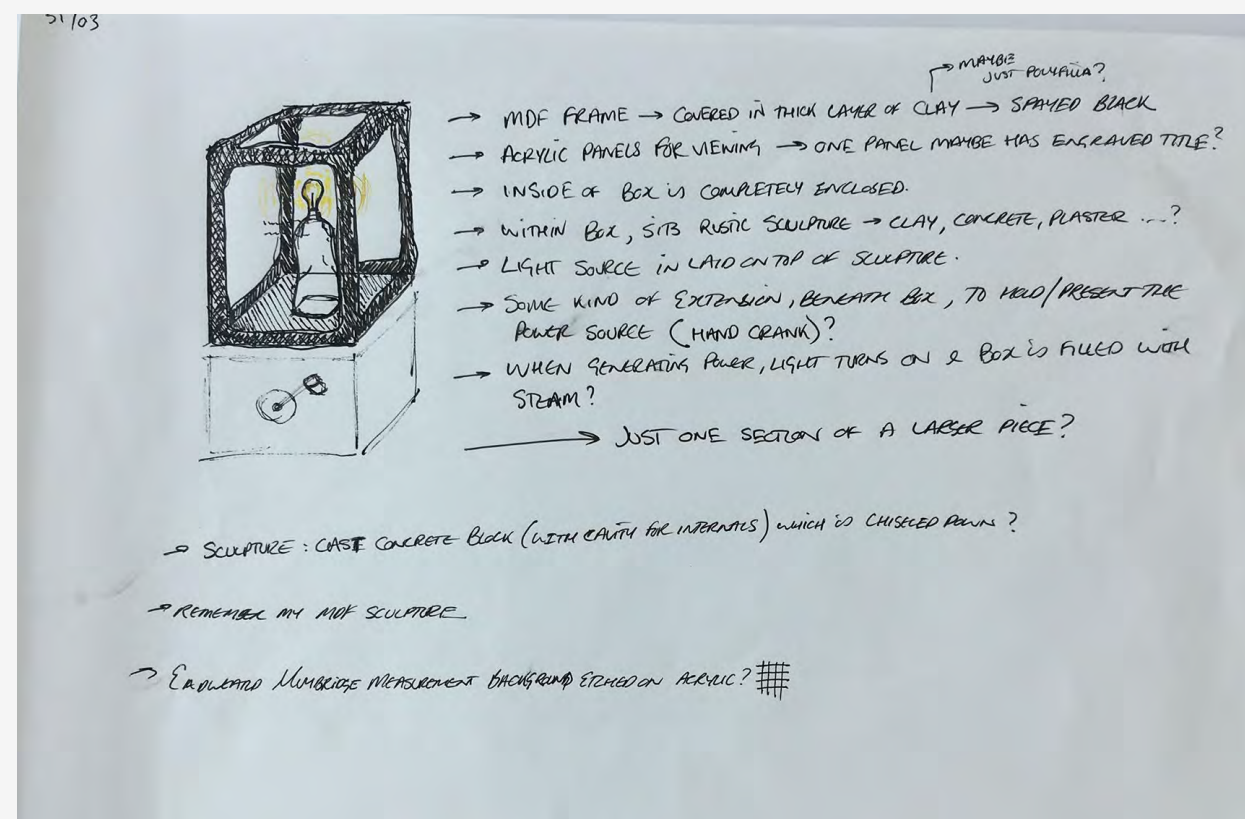 31/03
MAYBE
JUST POLYFILLA?
→ MDF FRAME → COVERED IN THICK LAYER OF CLAY → SPAYED BLACK
→ ACRYLIC PANELS FOR VIEWING → ONE PANEL MAYBE HAS ENGRAVED TITLE?
→ INSIDE OF BOX IS COMPLETELY ENCLOSED.
→ WITHIN BOX, SITS RUSTIC SCULPTURE → CLAY, CONCRETE, PLASTER ....?
→ LIGHT SOURCE IN LAID ON TOP OF SCULPTURE.
→ SOME KIND OF EXTENSION, BENEATH BOX, TO HOLD/PRESENT THE
POWER SOURCE (HAND CRANK)?
→ WHEN GENERATING POWER, LIGHT TURNS ON & BOX IS FILLED WITH
STEAM?
→ JUST ONE SECTION OF A LARGER PIECE?
→ SCULPTURE : CAST CONCRETE BLOCK (WITH CAVITY FOR INTERNALS) WHICH IS CHISELED DOWN ?
→ REMEMBER MY MDF SCULPTURE
→ EADWEARD MUYBRIDGE MEASUREMENT BACKGROUND ETCHED ON ACRYLIC?